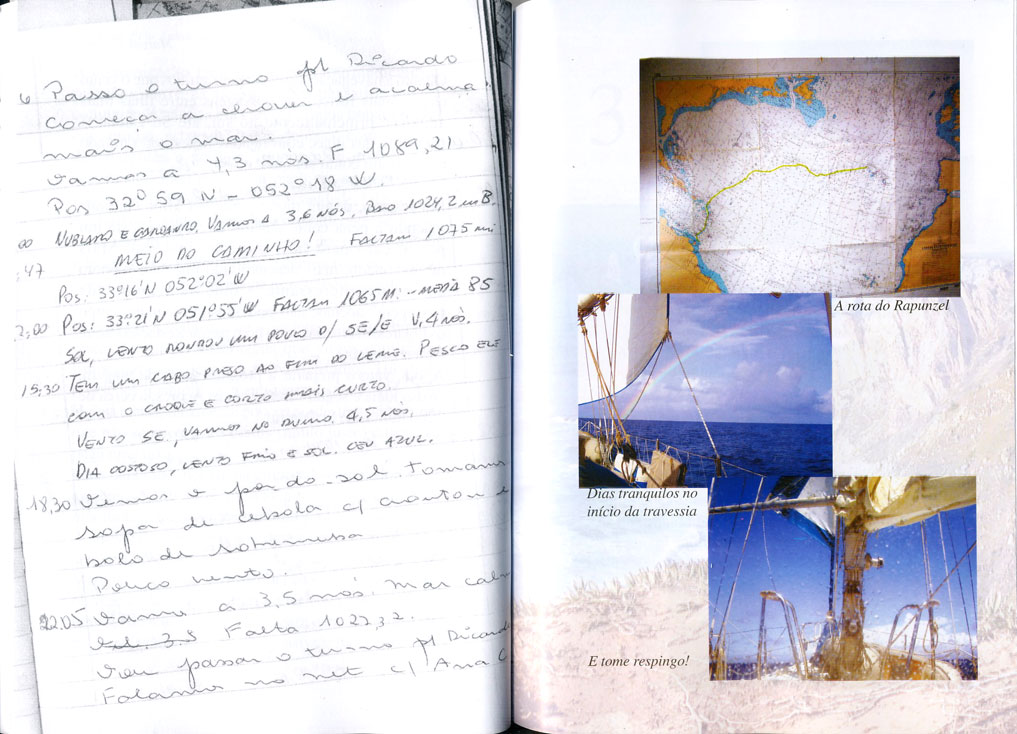 6 Passo o turno p/ Ricardo
começa a chover e acalma
mais o mar.
Vamos a 4,3 nós. F 1089,21
Pos 32º59 N - 052º18 W.
00 NUBLADO E GAROANDO. VAMOS A 3,6 NÓS. BARO 1024,2 mB.
:47 MEIO DO CAMINHO! FALTAM 1075 mi
Pos: 33º16'N 052º02'W
2,00 Pos: 33º21'N 051º55'W FALTAM 1065 M. - MEDIA 85
SOL, VENTO RONDOU UM POUCO P/ SE/E 4,4 NÓS.
15,30 TEM UM CABO PRESO AO FIM DO LEME. PESCO ELE
COM O CROQUE E CORTO MAIS CURTO.
VENTO SE, VAMOS NO RUMO. 4,5 NÓS.
DIA GOSTOSO, VENTO FRIO E SOL. CEU AZUL.
18,30 Vemos o por do-sol. Tomamos
sopa de cebola c/ crouton e
bolo de sobremesa
Pouco vento.
22,05 Vamos a 3,5 nós. Mar calm
Falta 1022,32.
Vou passar o turno p/ Ricardo
Falamos no net c/ Ana C
3
A rota do Rapunzel
Dias tranquilos no
início da travessia
E tome respingo!